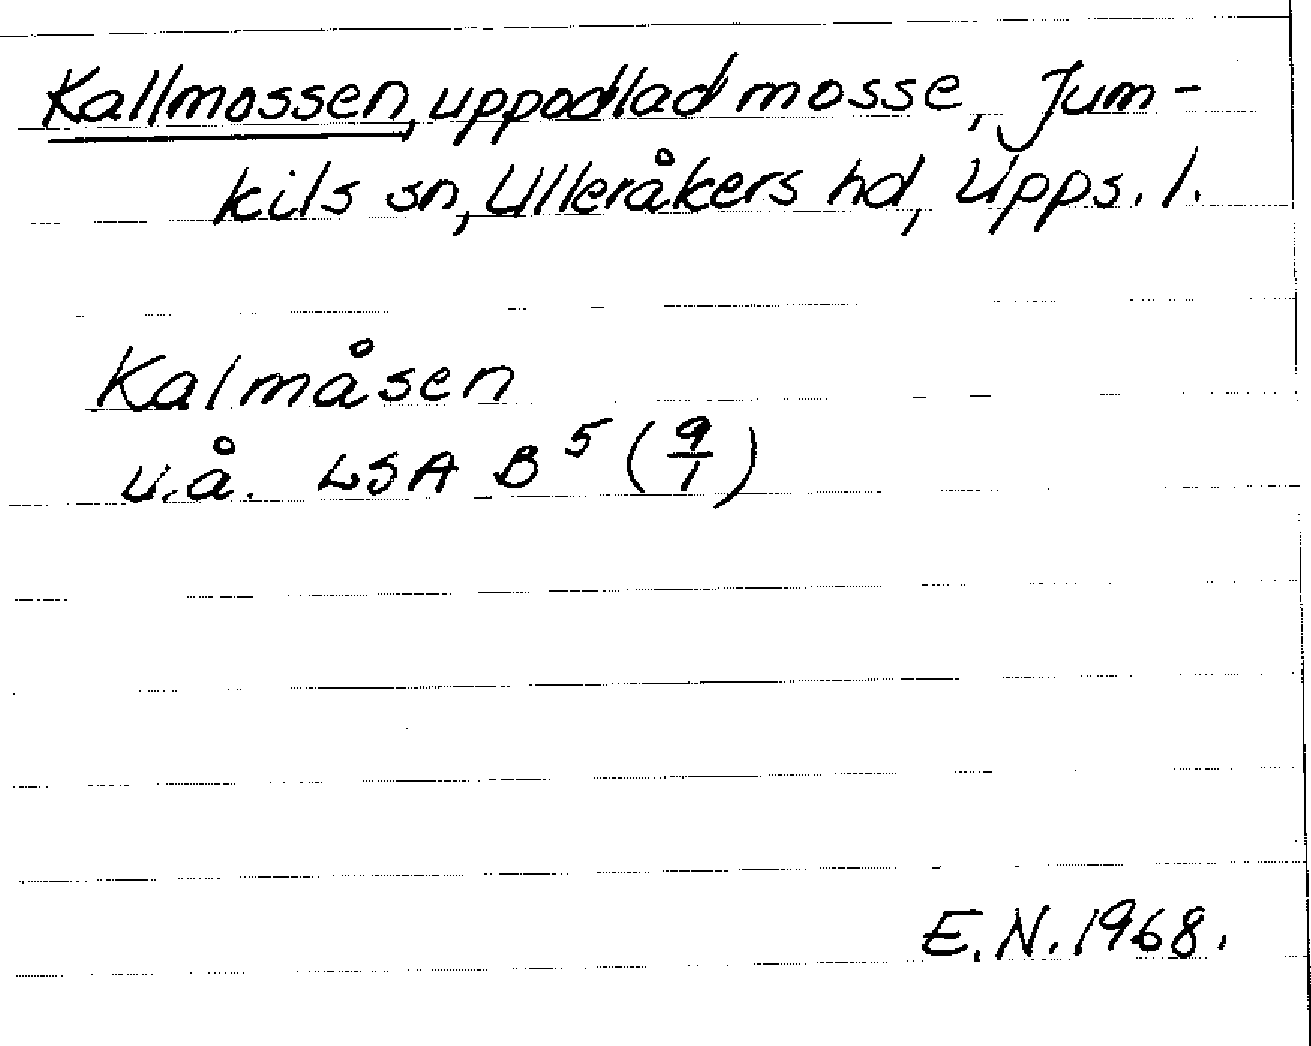 Kallmossen, uppodlad mosse, Jum-
kils sn, Ulleråkers hd, Upps. l.
Kalmåsen
u.å. LSA B⁵ (9/1)
E.N. 1968.